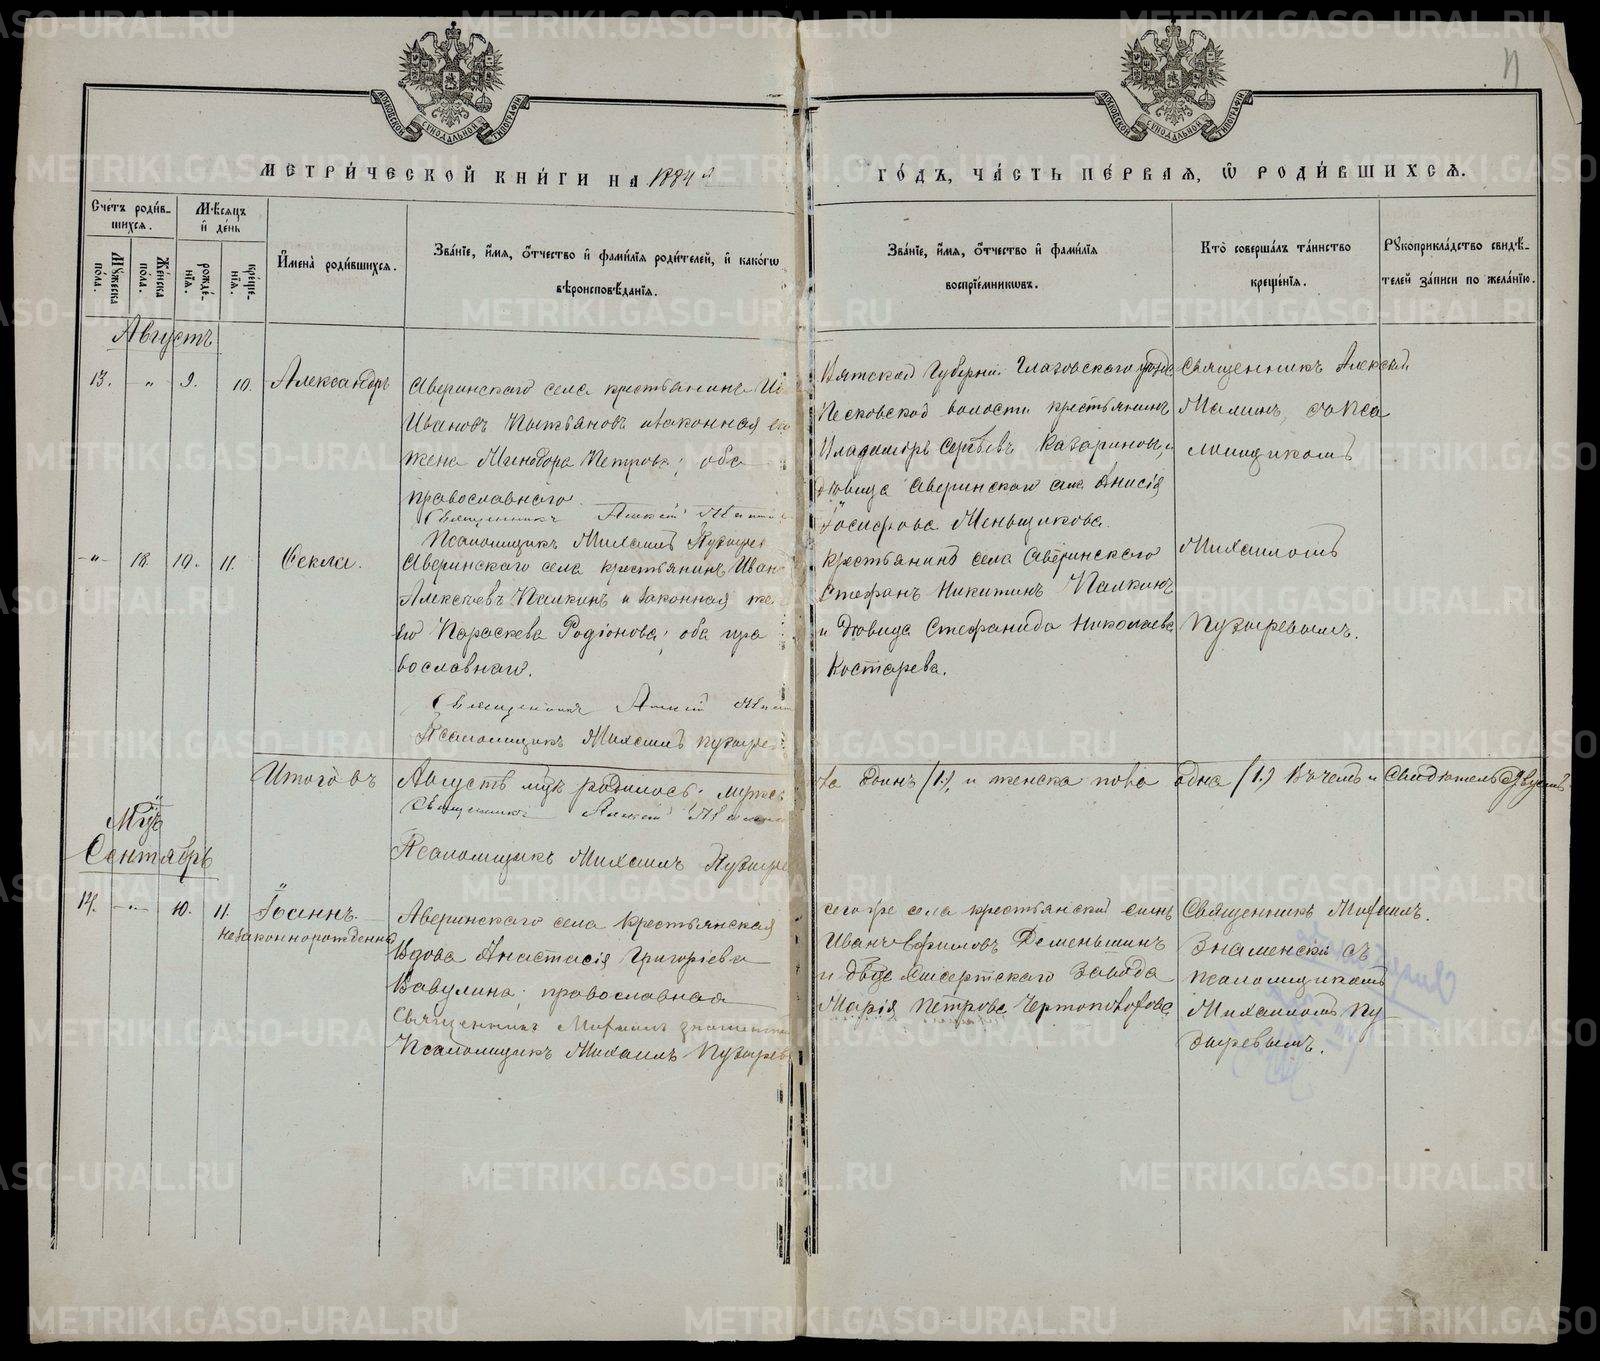 МОСКОВСКОЙ СУНОДАЛЬНОЙ ТИПОГРАФІИ
МОСКОВСКОЙ СУНОДАЛЬНОЙ ТИПОГРАФІИ
МЕТРИ́ЧЕСКОЙ КНИ́ГИ НА 1884 й
ГО́ДЪ, ЧА́СТЬ ПЕ́РВАЯ, Ѡ РОДИ́ВШИХСѦ.
Сче́тъ роди́в-
шихся.
Мѣсяцъ
и҆ де́нь
Му́жеска
по́ла.
Же́нска
по́ла.
рожде́-
нїя.
креще́-
нїя.
И҆мена̀ роди́вшихся.
Зва́нїе, и҆́мя, о҆́тчество и҆ фами́лїя роди́телей, и҆ како́гѡ
вѣроисповѣ́данїя.
Зва́нїе, и҆́мя, о҆́тчество и҆ фами́лїя
воспрїе́мниковъ.
Кто̀ соверша́лъ та́инство
креще́нїя.
Рукоприкла́дство свидѣ́-
телей за́писи по жела́нїю.
Августъ
13. „ 9. 10. Александръ
Аверинскаго села крестьянинъ
Ивановъ Пытьяновъ и законная его
жена Минодора Петрова; оба
православнаго
Священникъ Алексій
Псаломщикъ Михаилъ
Вятской Губерніи Глазовскаго уѣзда
Песковской волости крестьянинъ
Владимиръ Сергѣевъ Казариновъ, и
дѣвица Аверинскаго села Анисія
Іосифова Меньщикова.
Священникъ Алексѣй
Малинъ, съ Пса
ломщикомъ
„ 18. 10. 11. Ѳекла.
Аверинскаго села крестьянинъ Иванъ
Алексѣевъ Палкинъ и законная же
его Параскева Родіонова; оба пра
вославнаго.
Священникъ Алексій
Псаломщикъ Михаилъ
крестьянинъ села Аверинскаго
Стефанъ Никитинъ Палкинъ
и дѣвица Стефанида Николаева
Костарева.
Михаиломъ
Пузыревымъ.
Итого въ Августѣ мцѣ родилось: мужес
ка одинъ (1.), и женска пола одна (1.) В чемъ и Свидѣтельствуемъ
Священникъ Алексій
Псаломщикъ Михаилъ
Мцъ
Сентябрь
14. „ 10. 11. Іоаннъ.
незаконнорожденный
Аверинскаго села Крестьянская
Вдова Анастасія Григоріева
Вавулина; православная
Священникъ Михаилъ
Псаломщикъ Михаилъ Пузырев
сего же села крестьянскій сынъ
Иванъ Ефимовъ Деменьшинъ
и двца Сысертскаго Завода
Марія Петрова Чертополохова
Священникъ Михаилъ
Знаменскій съ
Псаломщикомъ
Михаиломъ Пу
зыревымъ.
METRIKI.GASO-URAL.RU